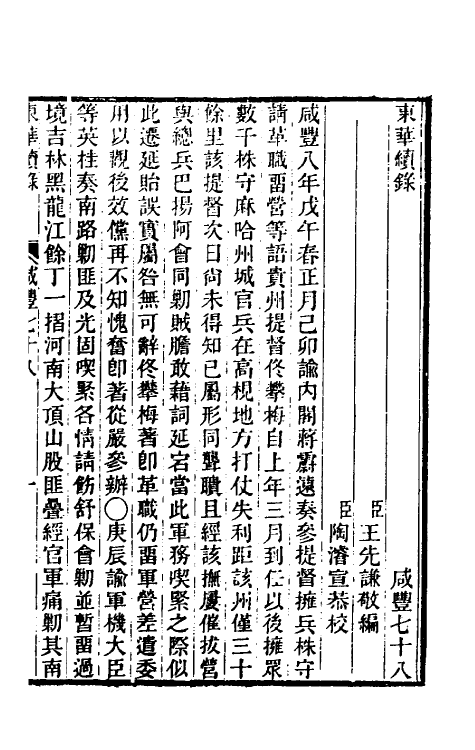 東華續錄 咸豐七十八
臣王先謙敬編
臣陶濬宣恭校
咸豐八年戊午春正月己卯諭內閣蔣霨遠奏參提督擁兵株守
請革職畱營等語貴州提督佟攀梅自上年三月到任以後擁眾
數千株守麻哈州城官兵在高梘地方打仗失利距該州僅三十
餘里該提督次日尚未得知已屬形同聾聵且經該撫屢催拔營
與總兵巴揚阿會同勦賊膽敢藉詞延宕當此軍務喫緊之際似
此遷延貽誤實屬咎無可辭佟攀梅著卽革職仍畱軍營差遣委
用以觀後效儻再不知愧奮卽著從嚴參辦〇庚辰諭軍機大臣
等英桂奏南路勦匪及光固喫緊各情請飭舒保會勦並暫畱過
境吉林黑龍江餘丁一摺河南大頂山股匪疊經官軍痛勦其南
東華續錄 咸豐七十八 一